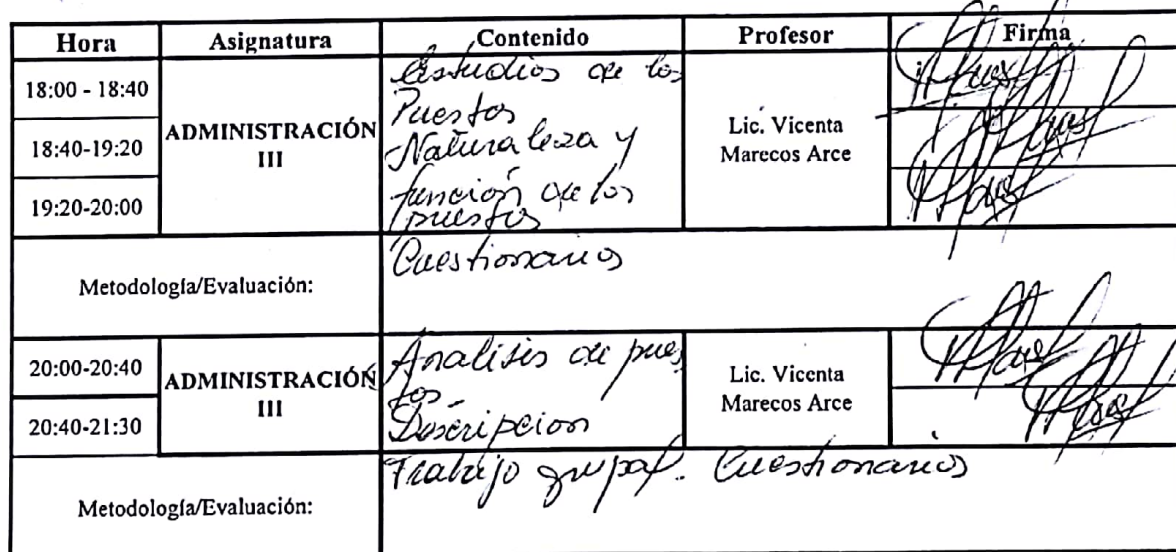 Hora Asignatura Contenido Profesor Firma
18:00 - 18:40
18:40-19:20
19:20-20:00
ADMINISTRACIÓN
III
Estudios de los
Puestos
Naturaleza y
función de los
puestos
Lic. Vicenta
Marecos Arce
Metodología/Evaluación:
Cuestionarios
20:00-20:40
20:40-21:30
ADMINISTRACIÓN
III
Analisis de pues
tos.
Descripcion
Lic. Vicenta
Marecos Arce
Metodología/Evaluación:
Trabajo grupal. Cuestionarios